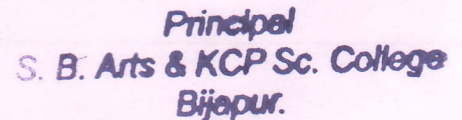 Principal
S. B. Arts & KCP Sc. College
Bijapur.